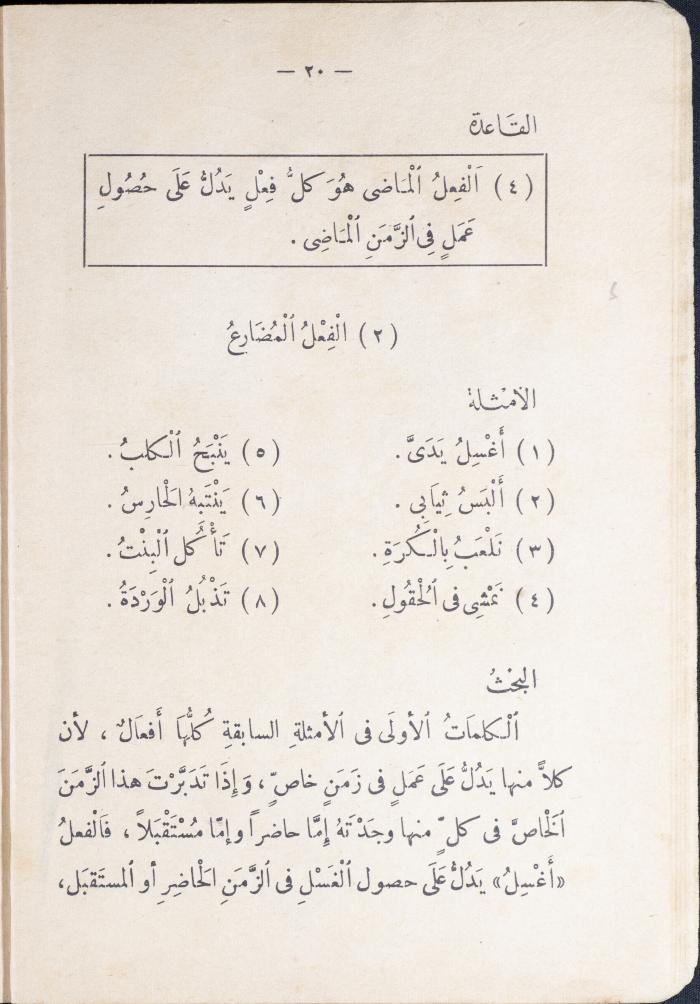 — ٢٠ —
القَاعدة
(٤) اَلْفِعلُ اَلْمَاضى هُوَ كلُّ فِعْلٍ يَدُلُّ عَلَى حُصُولِ
عَمَلٍ فِى اَلزَّمَنِ اَلْمَاضِى .
(٢) الْفِعْلُ اَلْمُضَارِعُ
الأمْثلة
(١) أَغْسِلُ يَدَىَّ .
(٢) أَلْبَسُ ثِيَابِى .
(٣) نَلْعَبُ بِالْكُرَةِ .
(٤) نَمْشِى فى اَلْحُقُولِ .
(٥) يَنْبَحُ اَلْكلبُ .
(٦) يَنْتَبِهُ الحَارِسُ .
(٧) تَأْكُل اَلْبِنْتُ .
(٨) تَذْبُلُ اَلْوَرْدَةُ .
البحْثُ
اَلْكلمَاتُ اَلأولَى فى اَلأمثلةِ السابقةِ كُلُّهَا أَفعَالٌ ، لأن
كلاًّ منها يَدُلُّ عَلَى عَمَلٍ فى زَمَنٍ خاصٍّ ، وَإِذَا تَدَبَّرْتَ هذا اَلزَّمَنَ
اَلْخَاصَّ فى كلٍّ منها وجَدْتَهُ إِمَّا حاضراً وإمّا مُسْتَقْبَلاً ، فَالْفعلُ
«أَغْسِلُ» يَدُلُّ عَلَى حصول اَلْغَسْلِ فى اَلزَّمَنِ الحَاضِرِ أو اَلمستَقبَل ،